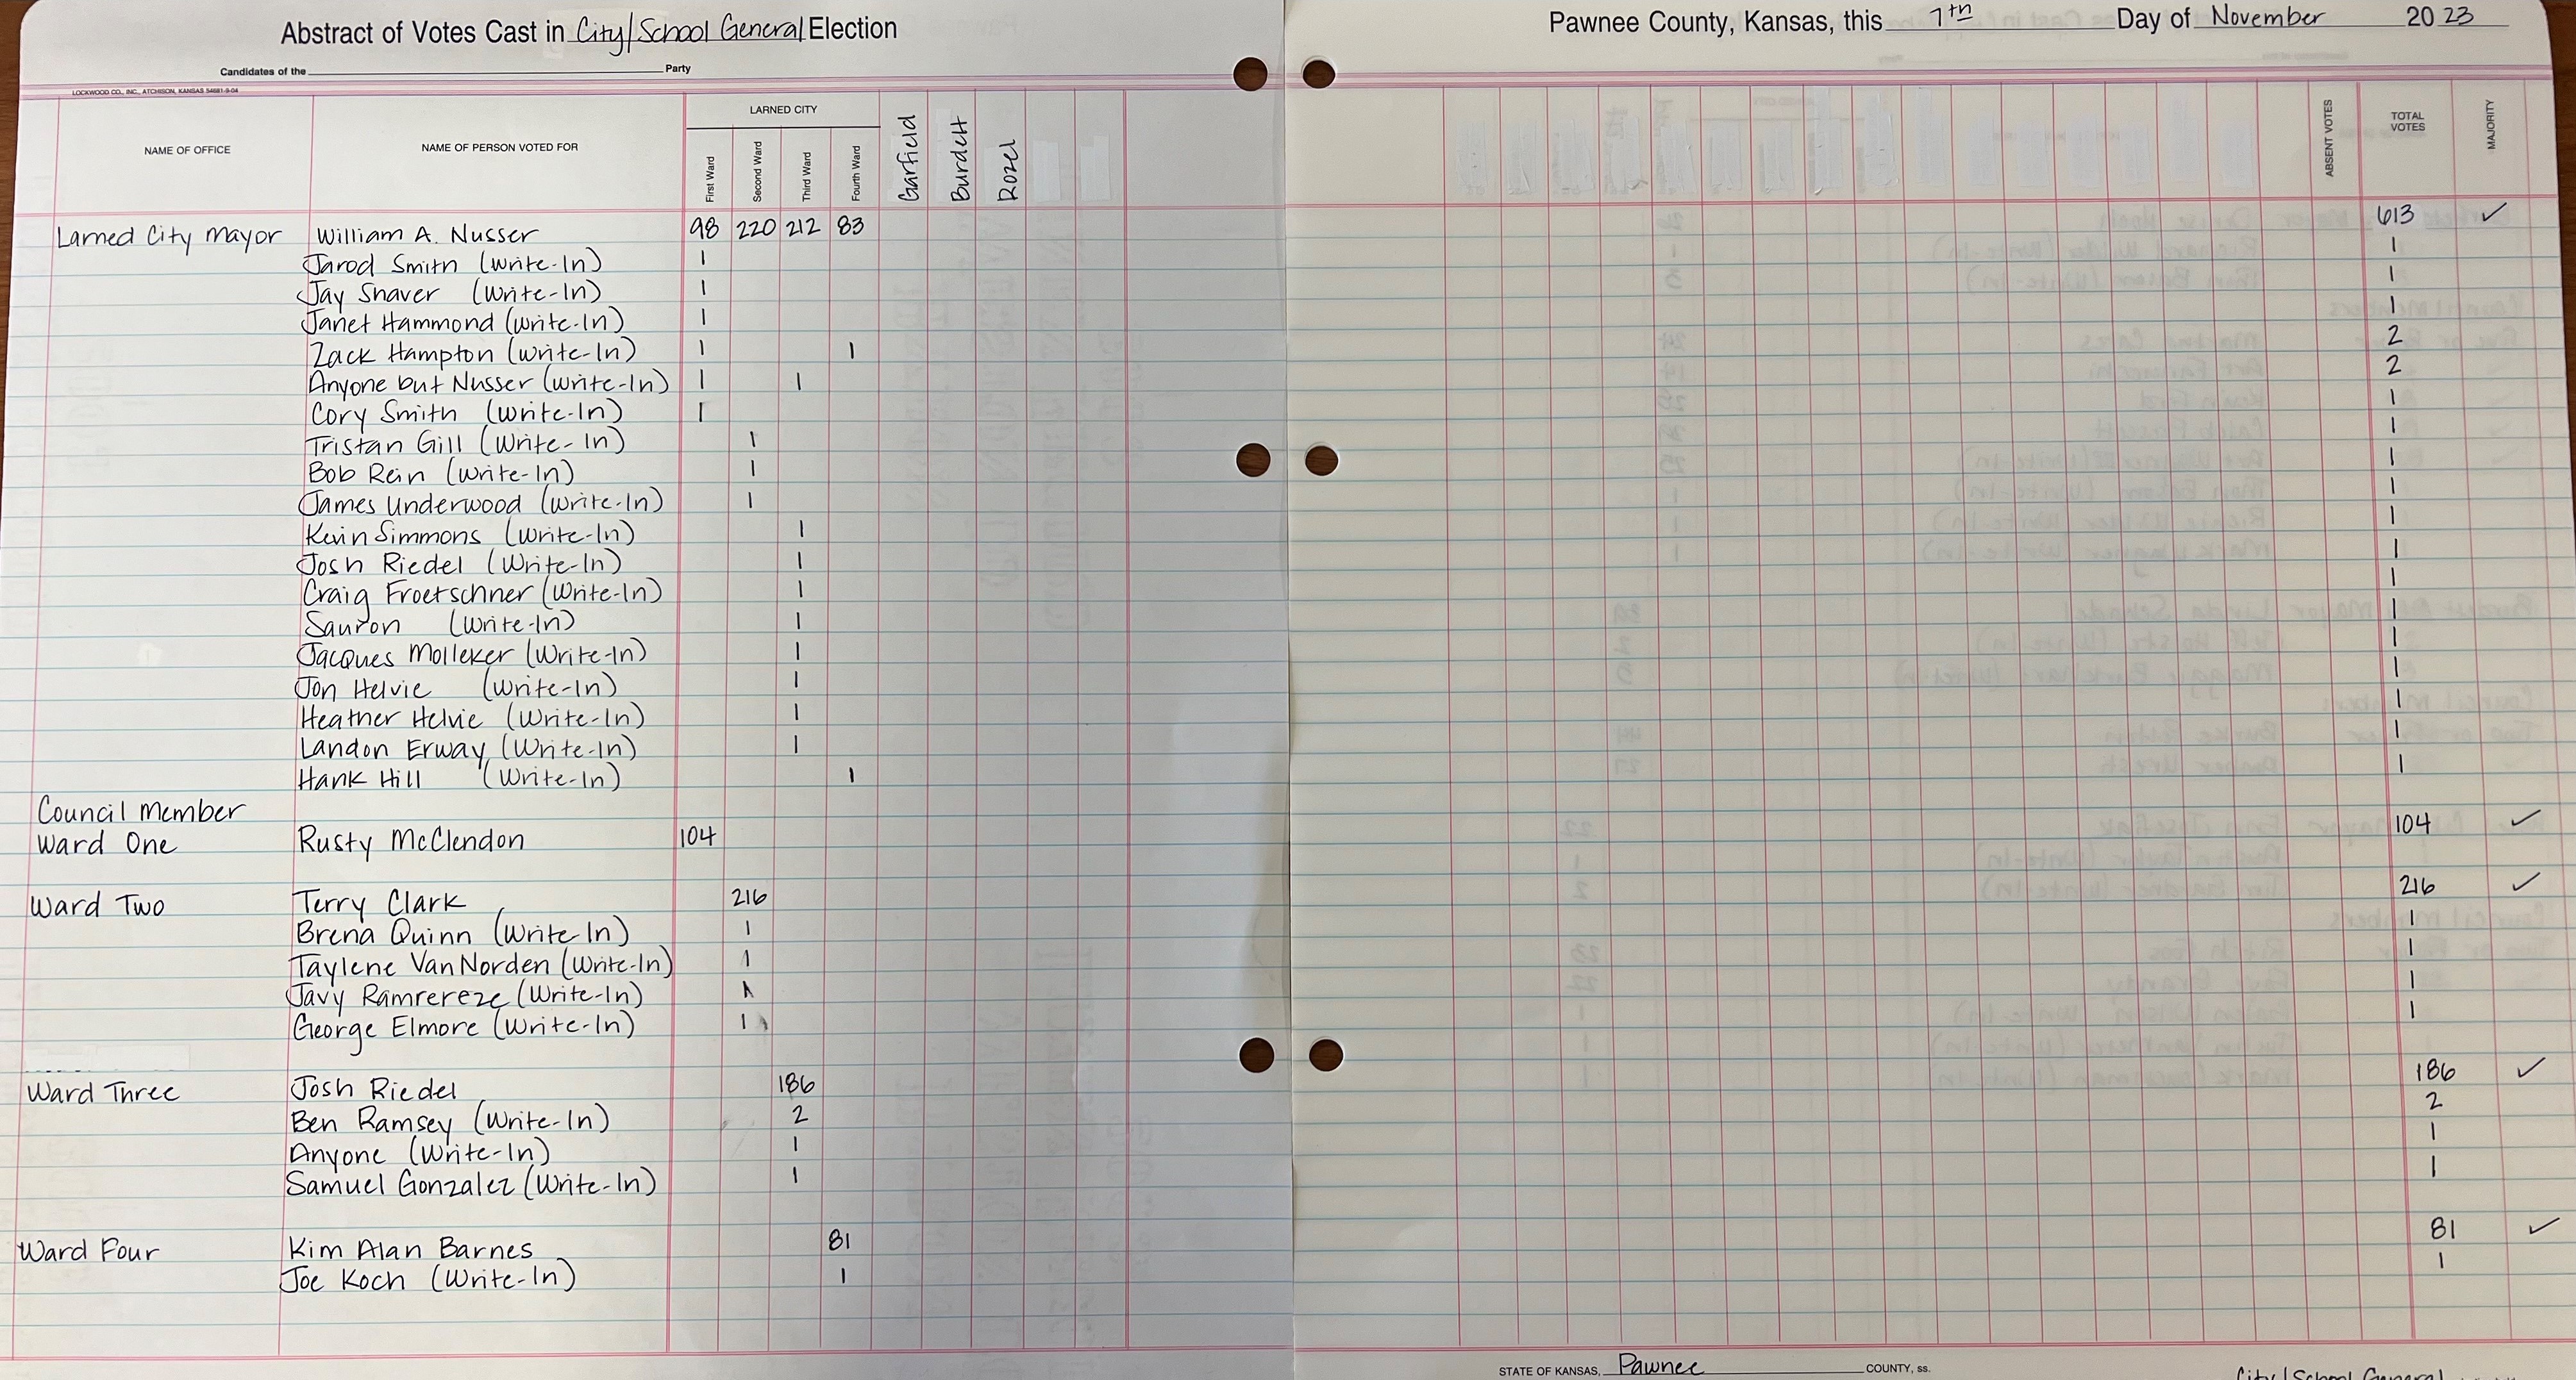 Abstract of Votes Cast in City/School General Election
Pawnee County, Kansas, this 7th Day of November 2023
Candidates of the Party
LOCKWOOD CO., INC., ATCHISON, KANSAS 54681-9-04
NAME OF OFFICE NAME OF PERSON VOTED FOR LARNED CITY First Ward Second Ward Third Ward Fourth Ward Garfield Burdett Rozel ABSENT VOTES TOTAL VOTES MAJORITY
Larned City Mayor William A. Nusser 98 220 212 83 613 ✓
Jarod Smith (Write-In) 1 1
Jay Shaver (Write-In) 1 1
Janet Hammond (Write-In) 1 1
Zack Hampton (Write-In) 1 1 2
Anyone but Nusser (Write-In) 1 1 2
Cory Smith (Write-In) 1 1
Tristan Gill (Write-In) 1 1
Bob Rein (Write-In) 1 1
James Underwood (Write-In) 1 1
Kevin Simmons (Write-In) 1 1
Josh Riedel (Write-In) 1 1
Craig Froetschner (Write-In) 1 1
Sauron (Write-In) 1 1
Jacques Molleker (Write-In) 1 1
Jon Helvie (Write-In) 1 1
Heather Helvie (Write-In) 1 1
Landon Erway (Write-In) 1 1
Hank Hill (Write-In) 1 1
Council Member
Ward One Rusty McClendon 104 104 ✓
Ward Two Terry Clark 216 216 ✓
Brena Quinn (Write-In) 1 1
Taylene VanNorden (Write-In) 1 1
Javy Ramrereze (Write-In) 1 1
George Elmore (Write-In) 1 1
Ward Three Josh Riedel 186 186 ✓
Ben Ramsey (Write-In) 2 2
Anyone (Write-In) 1 1
Samuel Gonzalez (Write-In) 1 1
Ward Four Kim Alan Barnes 81 81 ✓
Joe Koch (Write-In) 1 1
STATE OF KANSAS, Pawnee COUNTY, ss.
City/School General